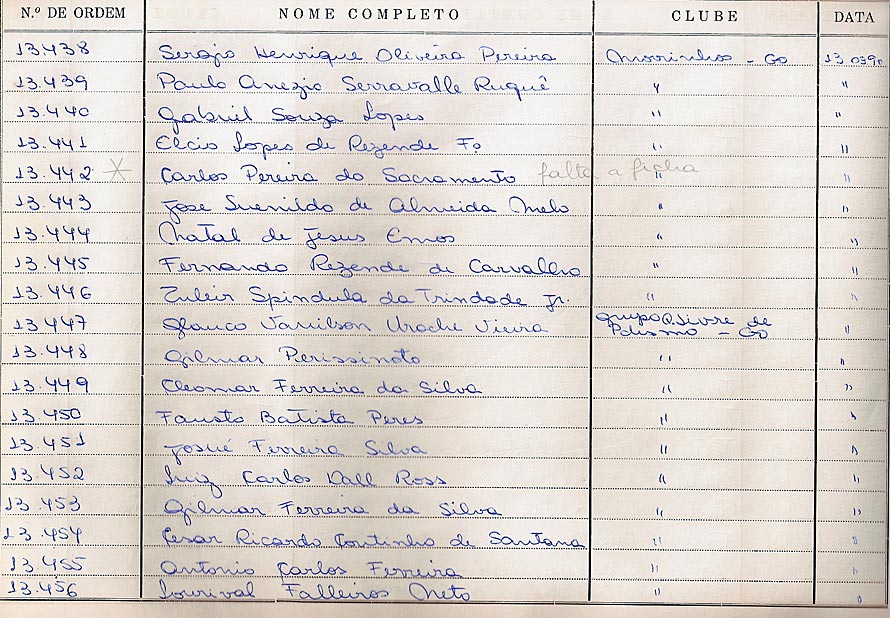 N.º DE ORDEM NOME COMPLETO CLUBE DATA
13.438 Sergio Henrique Oliveira Pereira Morrinhos - GO 13 039
13.439 Paulo Anezio Serravalle Ruguê " "
13.440 Gabriel Souza Lopes " "
13.441 Elcio Lopes de Rezende Fº " "
13.442 * Carlos Pereira do Sacramento falta a ficha " "
13.443 Jose Suenildo de Almeida Melo " "
13.444 Natal de Jesus Emos " "
13.445 Fernando Rezende de Carvalho " "
13.446 Zuleir Spindula da Trindade Jr. " "
13.447 Glauco Vieira Grupo Q. Livre de "
Pdismo - GO
13.448 Gilmar Perissinoto " "
13.449 Cleomar Ferreira da Silva " "
13.450 Fausto Batista Peres " "
13.451 Josué Ferreira Silva " "
13.452 Luiz Carlos Dall Ross " "
13.453 Gilmar Ferreira da Silva " "
13.454 Cesar Ricardo Coutinho de Santana " "
13.455 Antonio Carlos Ferreira " "
13.456 Lourival Falleiros Neto " "